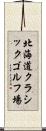 北海道クラシックゴルフ場